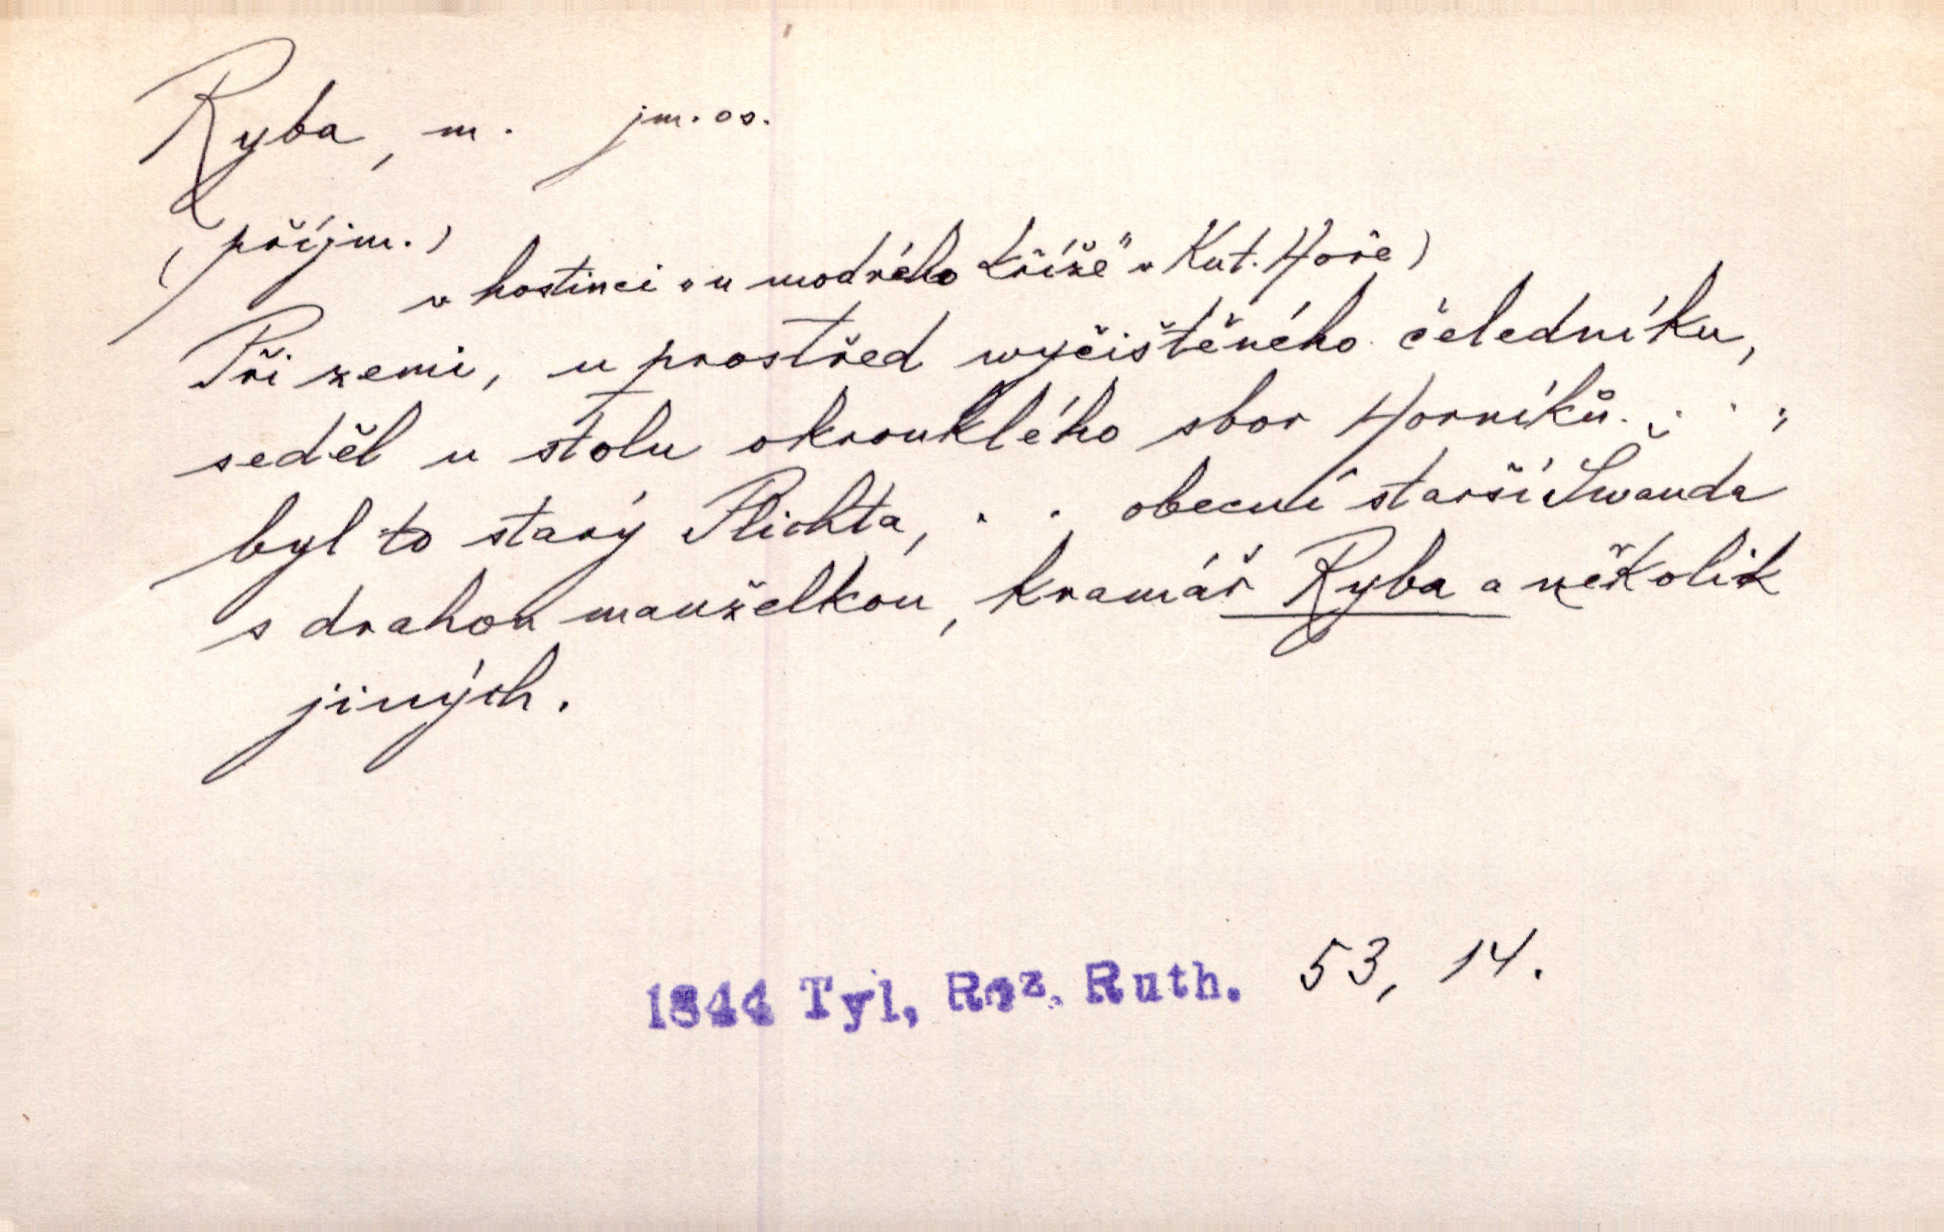 Ryba, m. jm. os.
(příjm.)
v hostinci „u modrého kříže" v Kut. Hoře)
Při zemi, u prostřed wyčištěného čeledníku,
seděl u stolu okrouklého sbor Horníků. . . . ;
byl to starý Plichta, . . obecní starší Swanda
s drahou manželkou, kramář Ryba a několik
jiných.
1844 Tyl, Roz. Ruth. 53, 14.